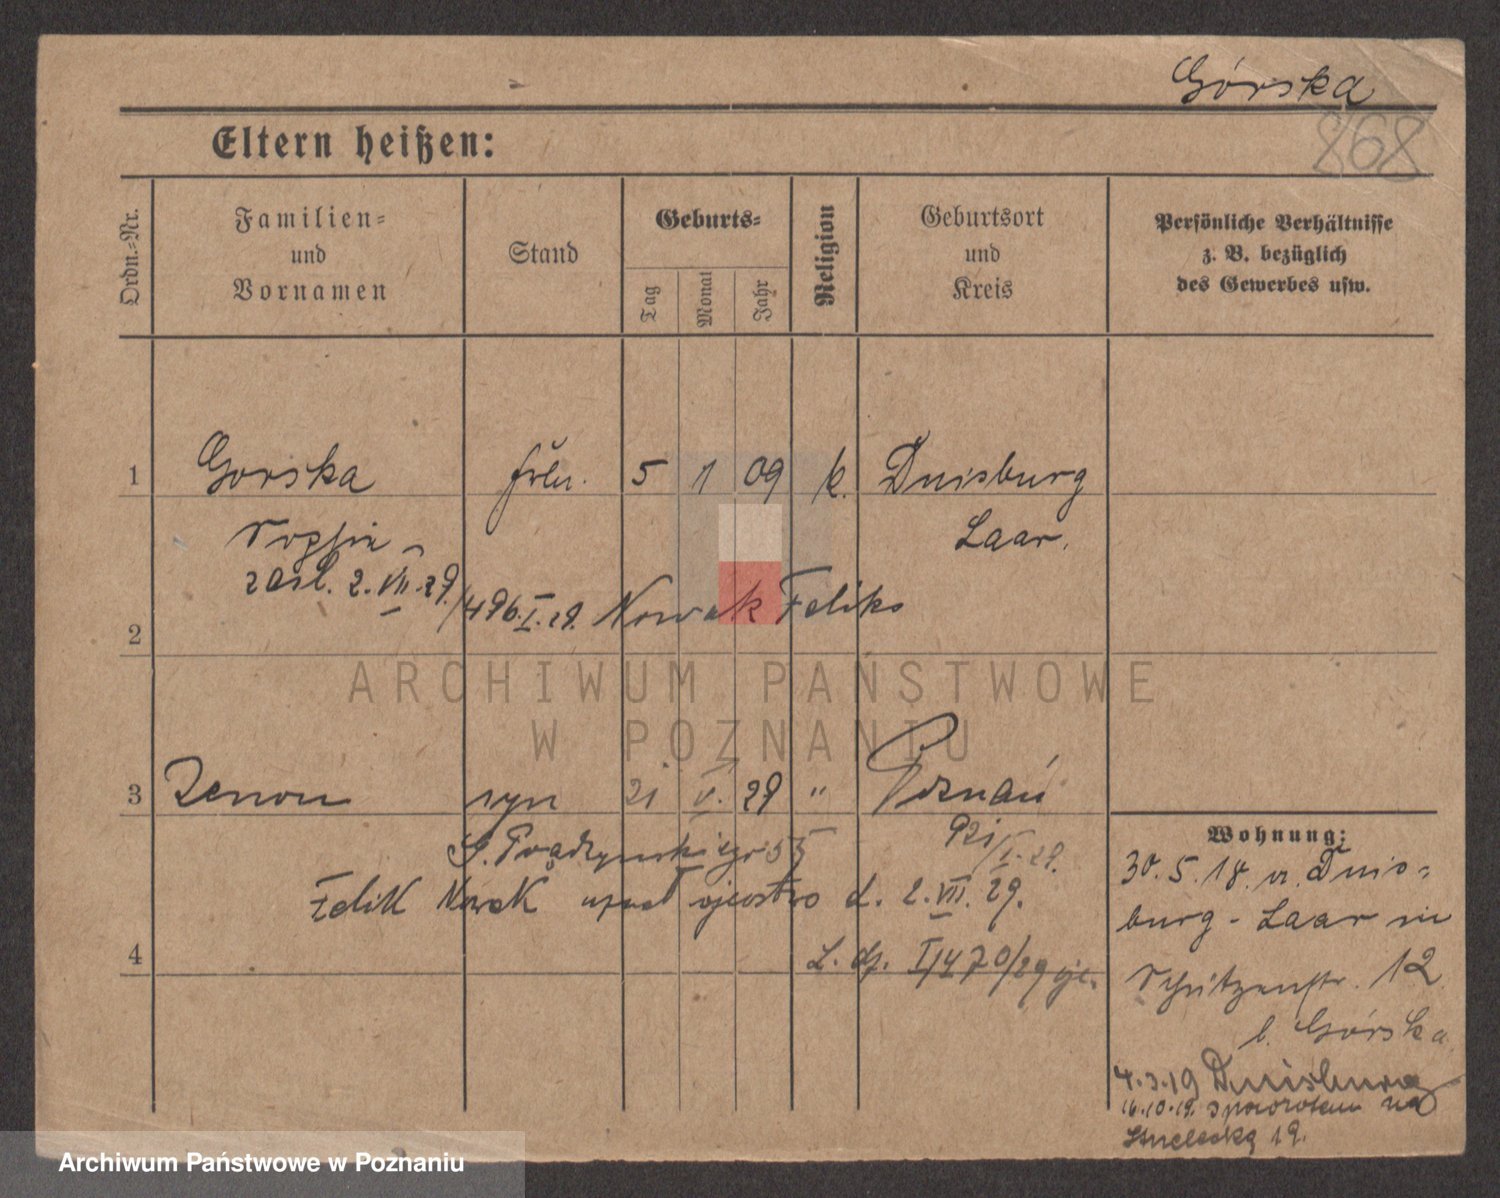 Górska
868
Eltern heißen:
Ordn.-Nr.
Familien-
und
Vornamen
Stand
Geburts-
Tag
Monat
Jahr
Religion
Geburtsort
und
Kreis
Persönliche Verhältnisse
z. B. bezüglich
des Gewerbes usw.
1 Gorska 5 1 09 k. Duisburg
Sophie Laar.
zaśl. 2. VII. 29. /496. I. 29. Nowak Feliks
2
ARCHIWUM PAŃSTWOWE
W POZNANIU
3 Zenon syn 21 V. 29 " Poznań
921/I. 29.
G. Prądzyńskiego 55
Felik Nowak uznał ojcostwo d. 2. VII. 29.
4
L. dz. I 1470/29
Wohnung:
30. 5. 18. v. Duis-
burg - Laar in
Schützenstr. 12
b. Górska
4.3.19 Duisburg
16.10.19. spowrotem na
Strzelecką 19.
Archiwum Państwowe w Poznaniu